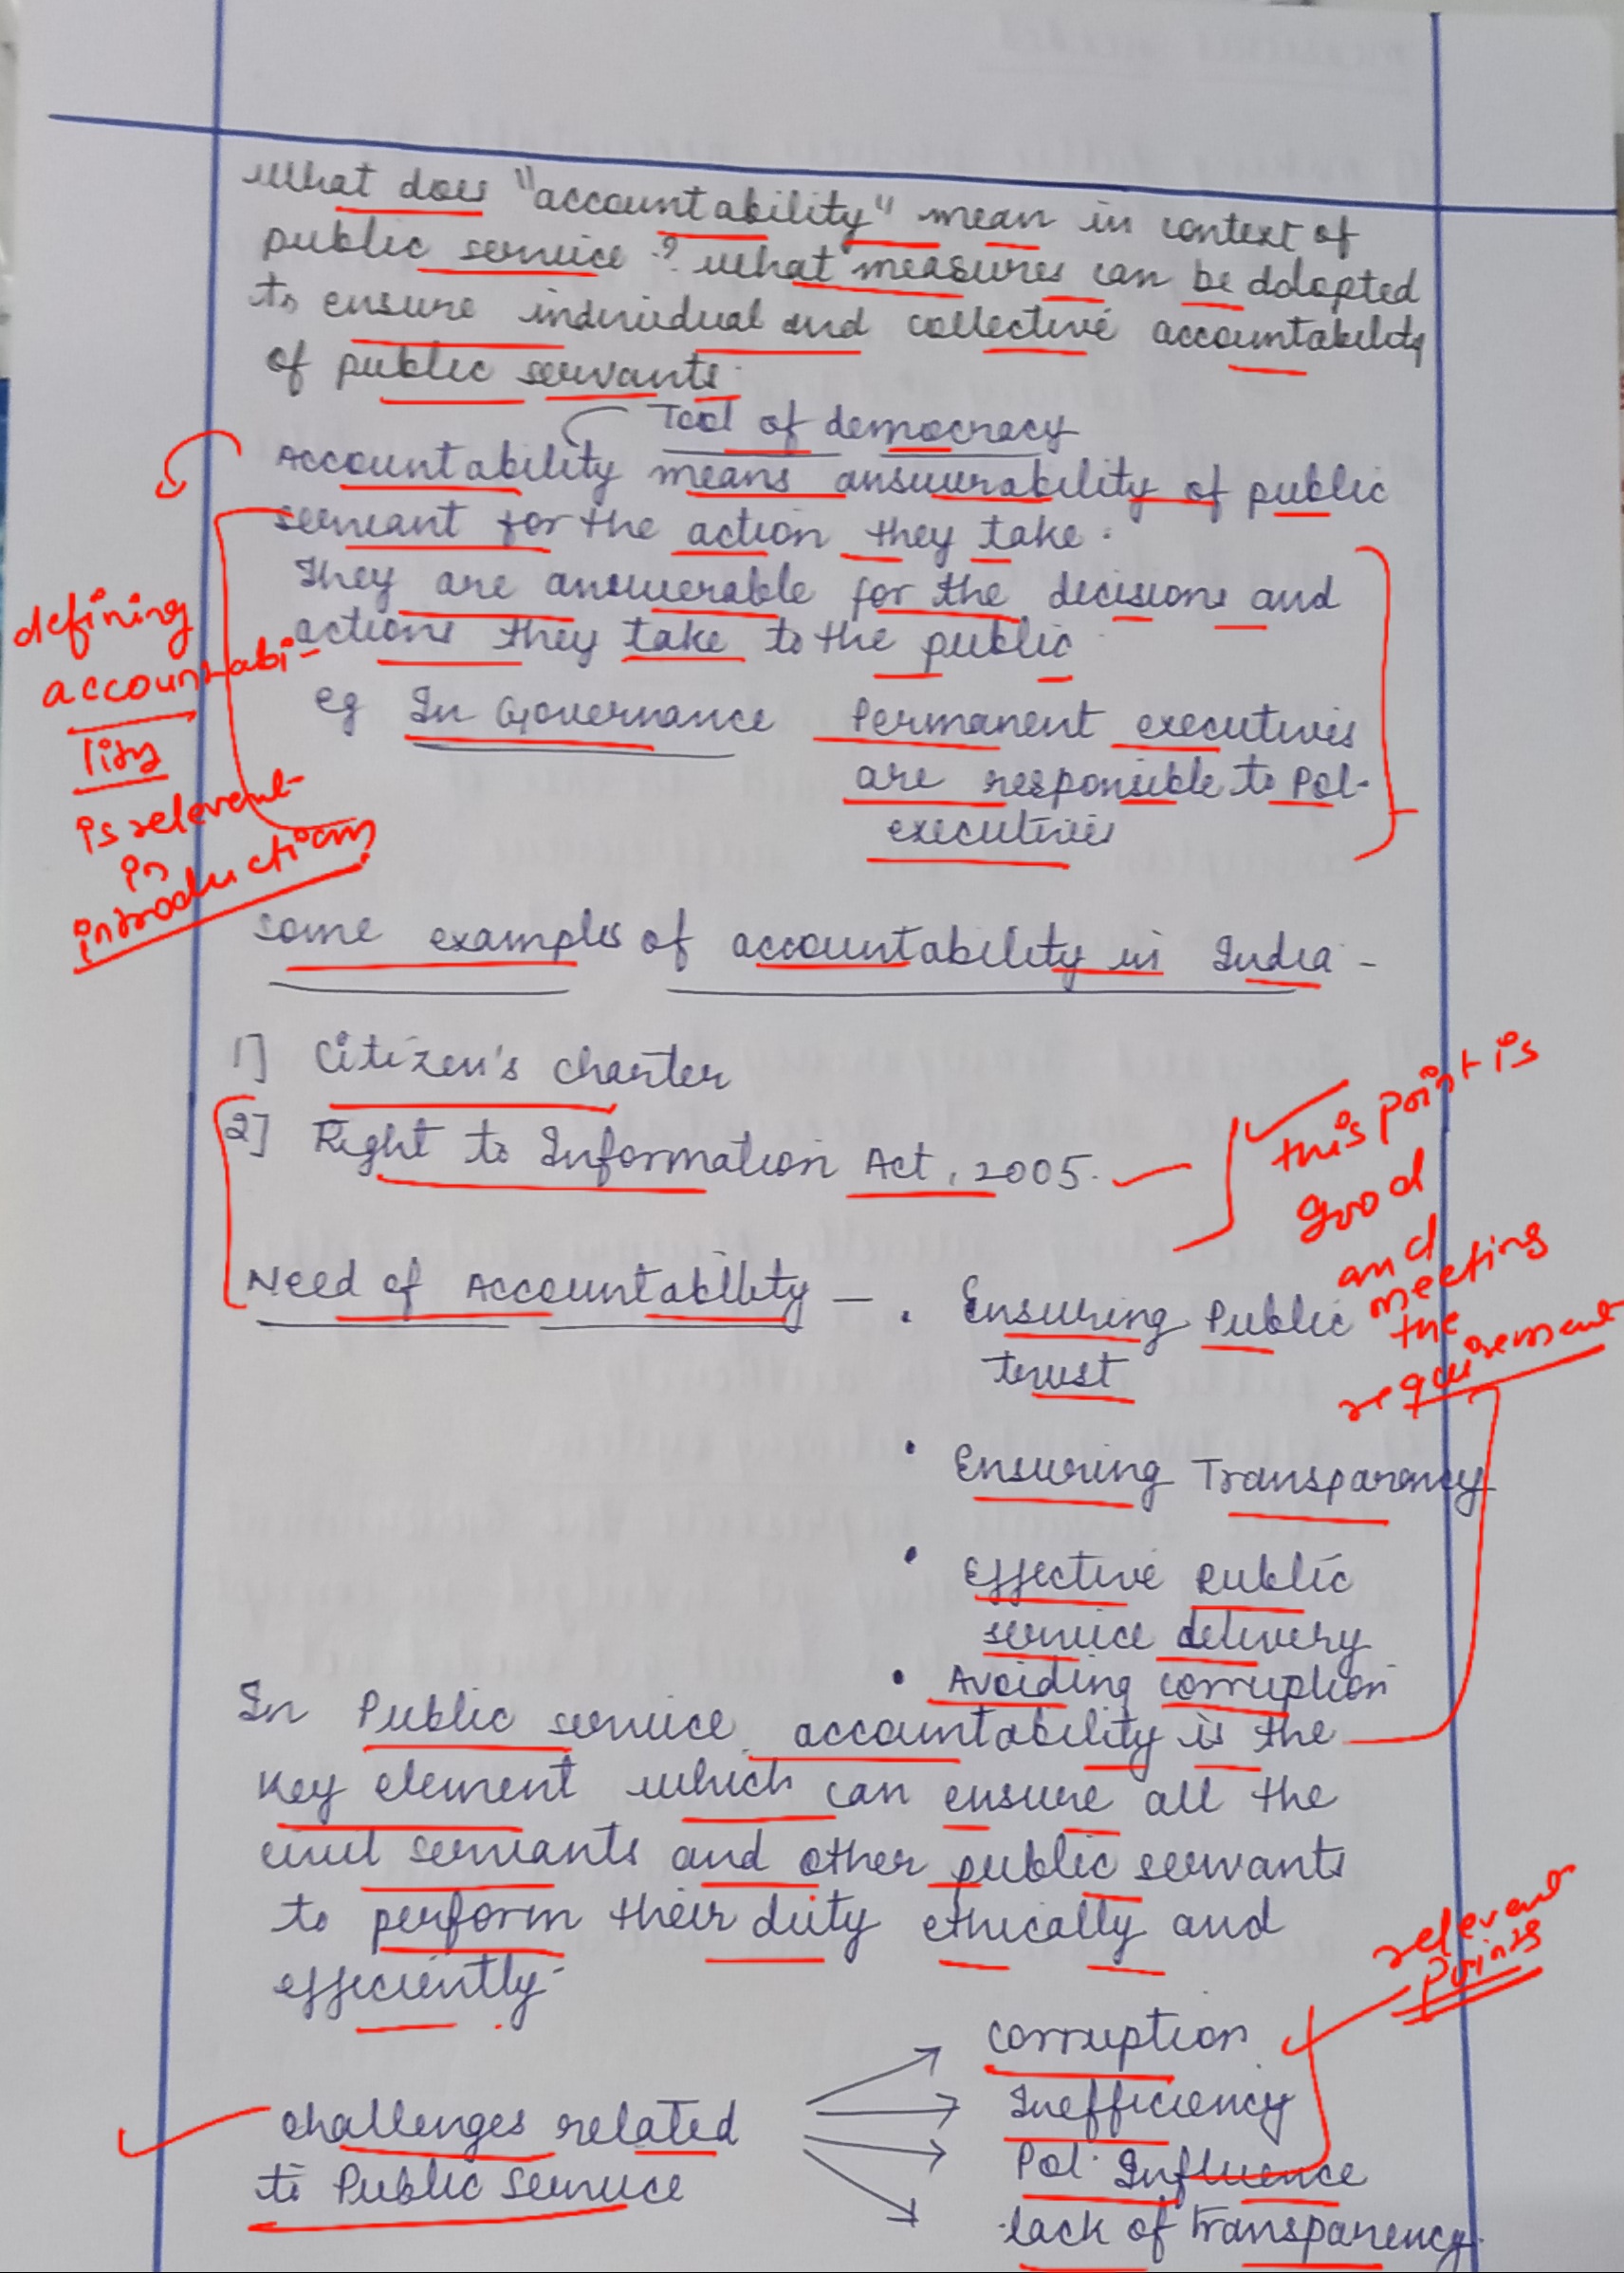 What does "accountability" mean in context of
public service? What measures can be adopted
to ensure individual and collective accountability
of public servants.
Tool of democracy
Accountability means answerability of public
servant for the action they take.
They are answerable for the decisions and
actions they take to the public.
eg In Governance Permanent executives
are responsible to Pol.
executives
defining
accountabi-
lity
is relevent
in
introduction
some examples of accountability in India -
1] Citizen's charter
2] Right to Information Act, 2005.
this point is
good
and
meeting
the
requirement
Need of Accountability — • Ensuring Public
trust
• Ensuring Transparency
• Effective Public
service delivery
• Avoiding corruption
In Public service, accountability is the
key element which can ensure all the
civil servants and other public servants
to perform their duty ethically and
efficiently.
relevent
points
challenges related
to Public Service
corruption
Inefficiency
Pol. Influence
lack of transparency.